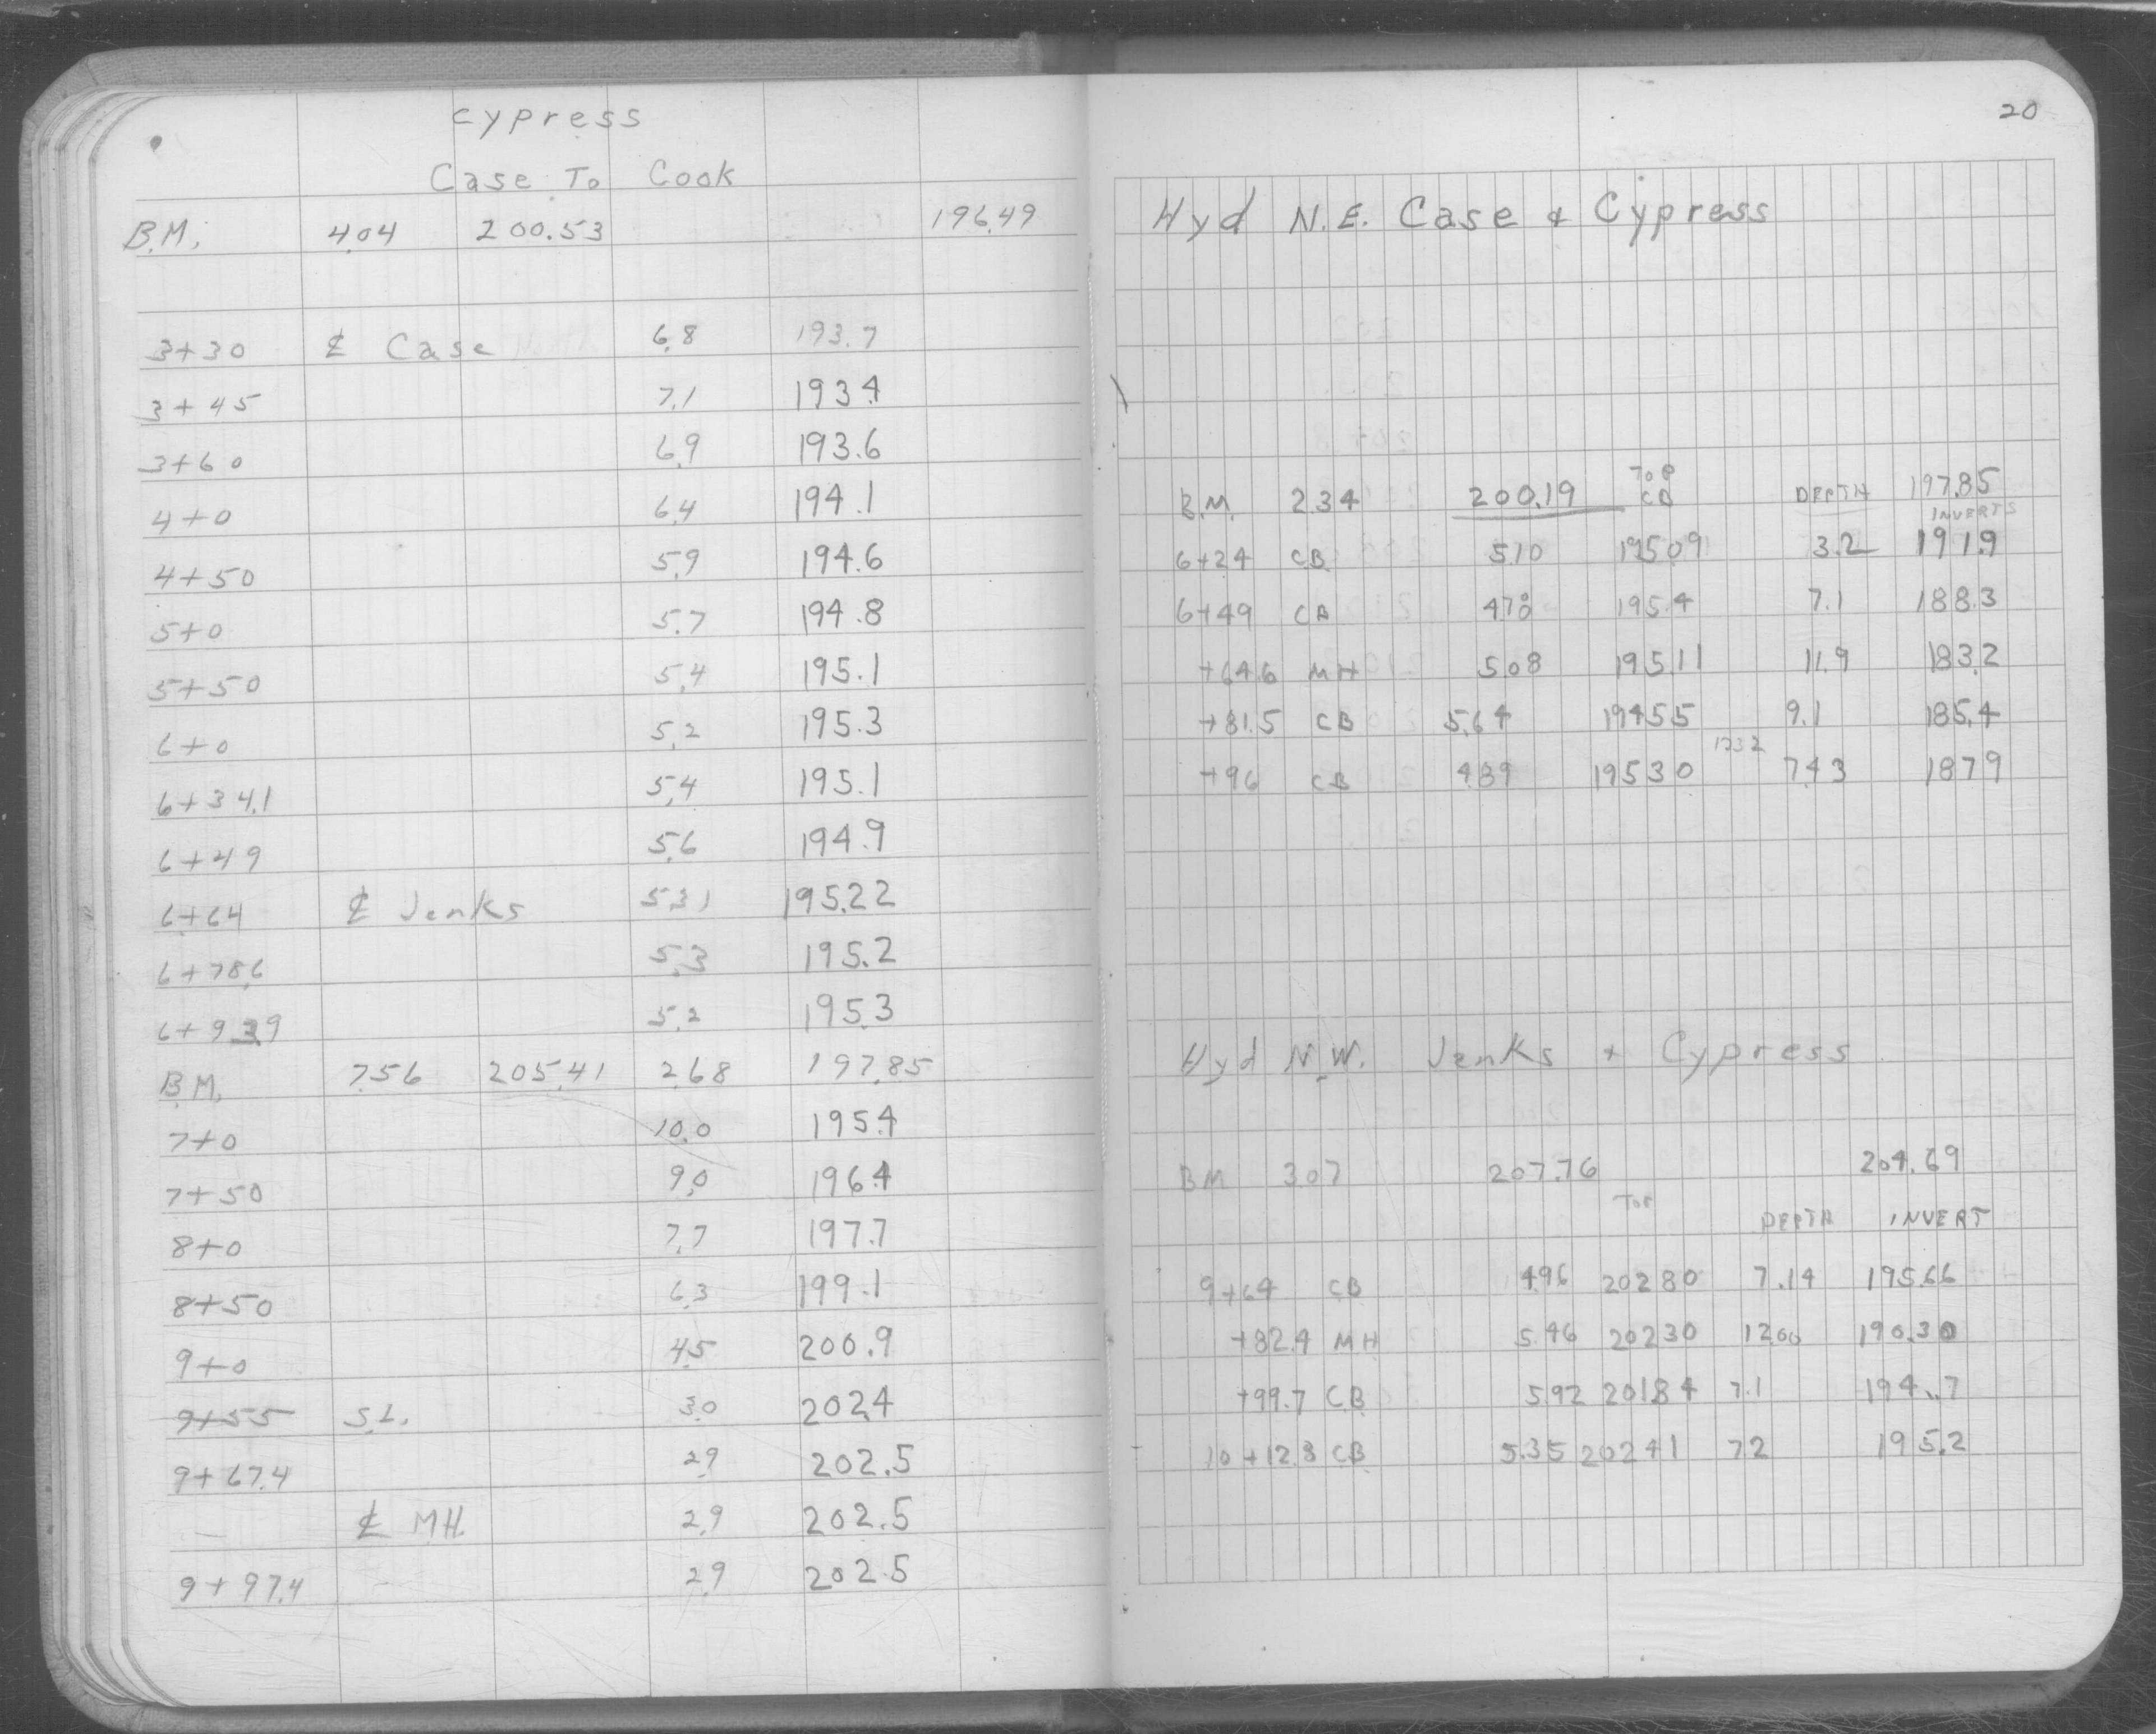 Cypress
Case To Cook
B.M. 4.04 200.53 196.49
3+30 ℄ Case 6.8 193.7
3+45 7.1 193.4
3+60 6.9 193.6
4+0 6.4 194.1
4+50 5.9 194.6
5+0 5.7 194.8
5+50 5.4 195.1
6+0 5.2 195.3
6+34.1 5.4 195.1
6+49 5.6 194.9
6+64 ℄ Jenks 5.31 195.22
6+78.6 5.3 195.2
6+93.9 5.2 195.3
B.M. 7.56 205.41 2.68 197.85
7+0 10.0 195.4
7+50 9.0 196.4
8+0 7.7 197.7
8+50 6.3 199.1
9+0 4.5 200.9
9+55 S.L. 3.0 202.4
9+67.4 2.9 202.5
— ℄ MH. 2.9 202.5
9+97.4 2.9 202.5
20
Hyd N.E. Case & Cypress
B.M. 2.34 200.19 TOP CB DEPTH 197.85
INVERTS
6+24 CB 5.10 195.09 3.2 191.9
6+49 CB 4.78 195.4 7.1 188.3
+64.6 MH 5.08 195.11 11.9 183.2
+81.5 CB 5.64 194.55 9.1 185.4
+96 CB 4.89 195.30 7.43 187.9
Hyd N.W. Jenks & Cypress
BM 3.07 207.76 204.69
TOP DEPTH INVERT
9+64 CB 4.96 202.80 7.14 195.66
+82.4 MH 5.46 202.30 12.00 190.30
+99.7 CB 5.92 201.84 7.1 194.7
10+12.8 CB 5.35 202.41 7.2 195.2